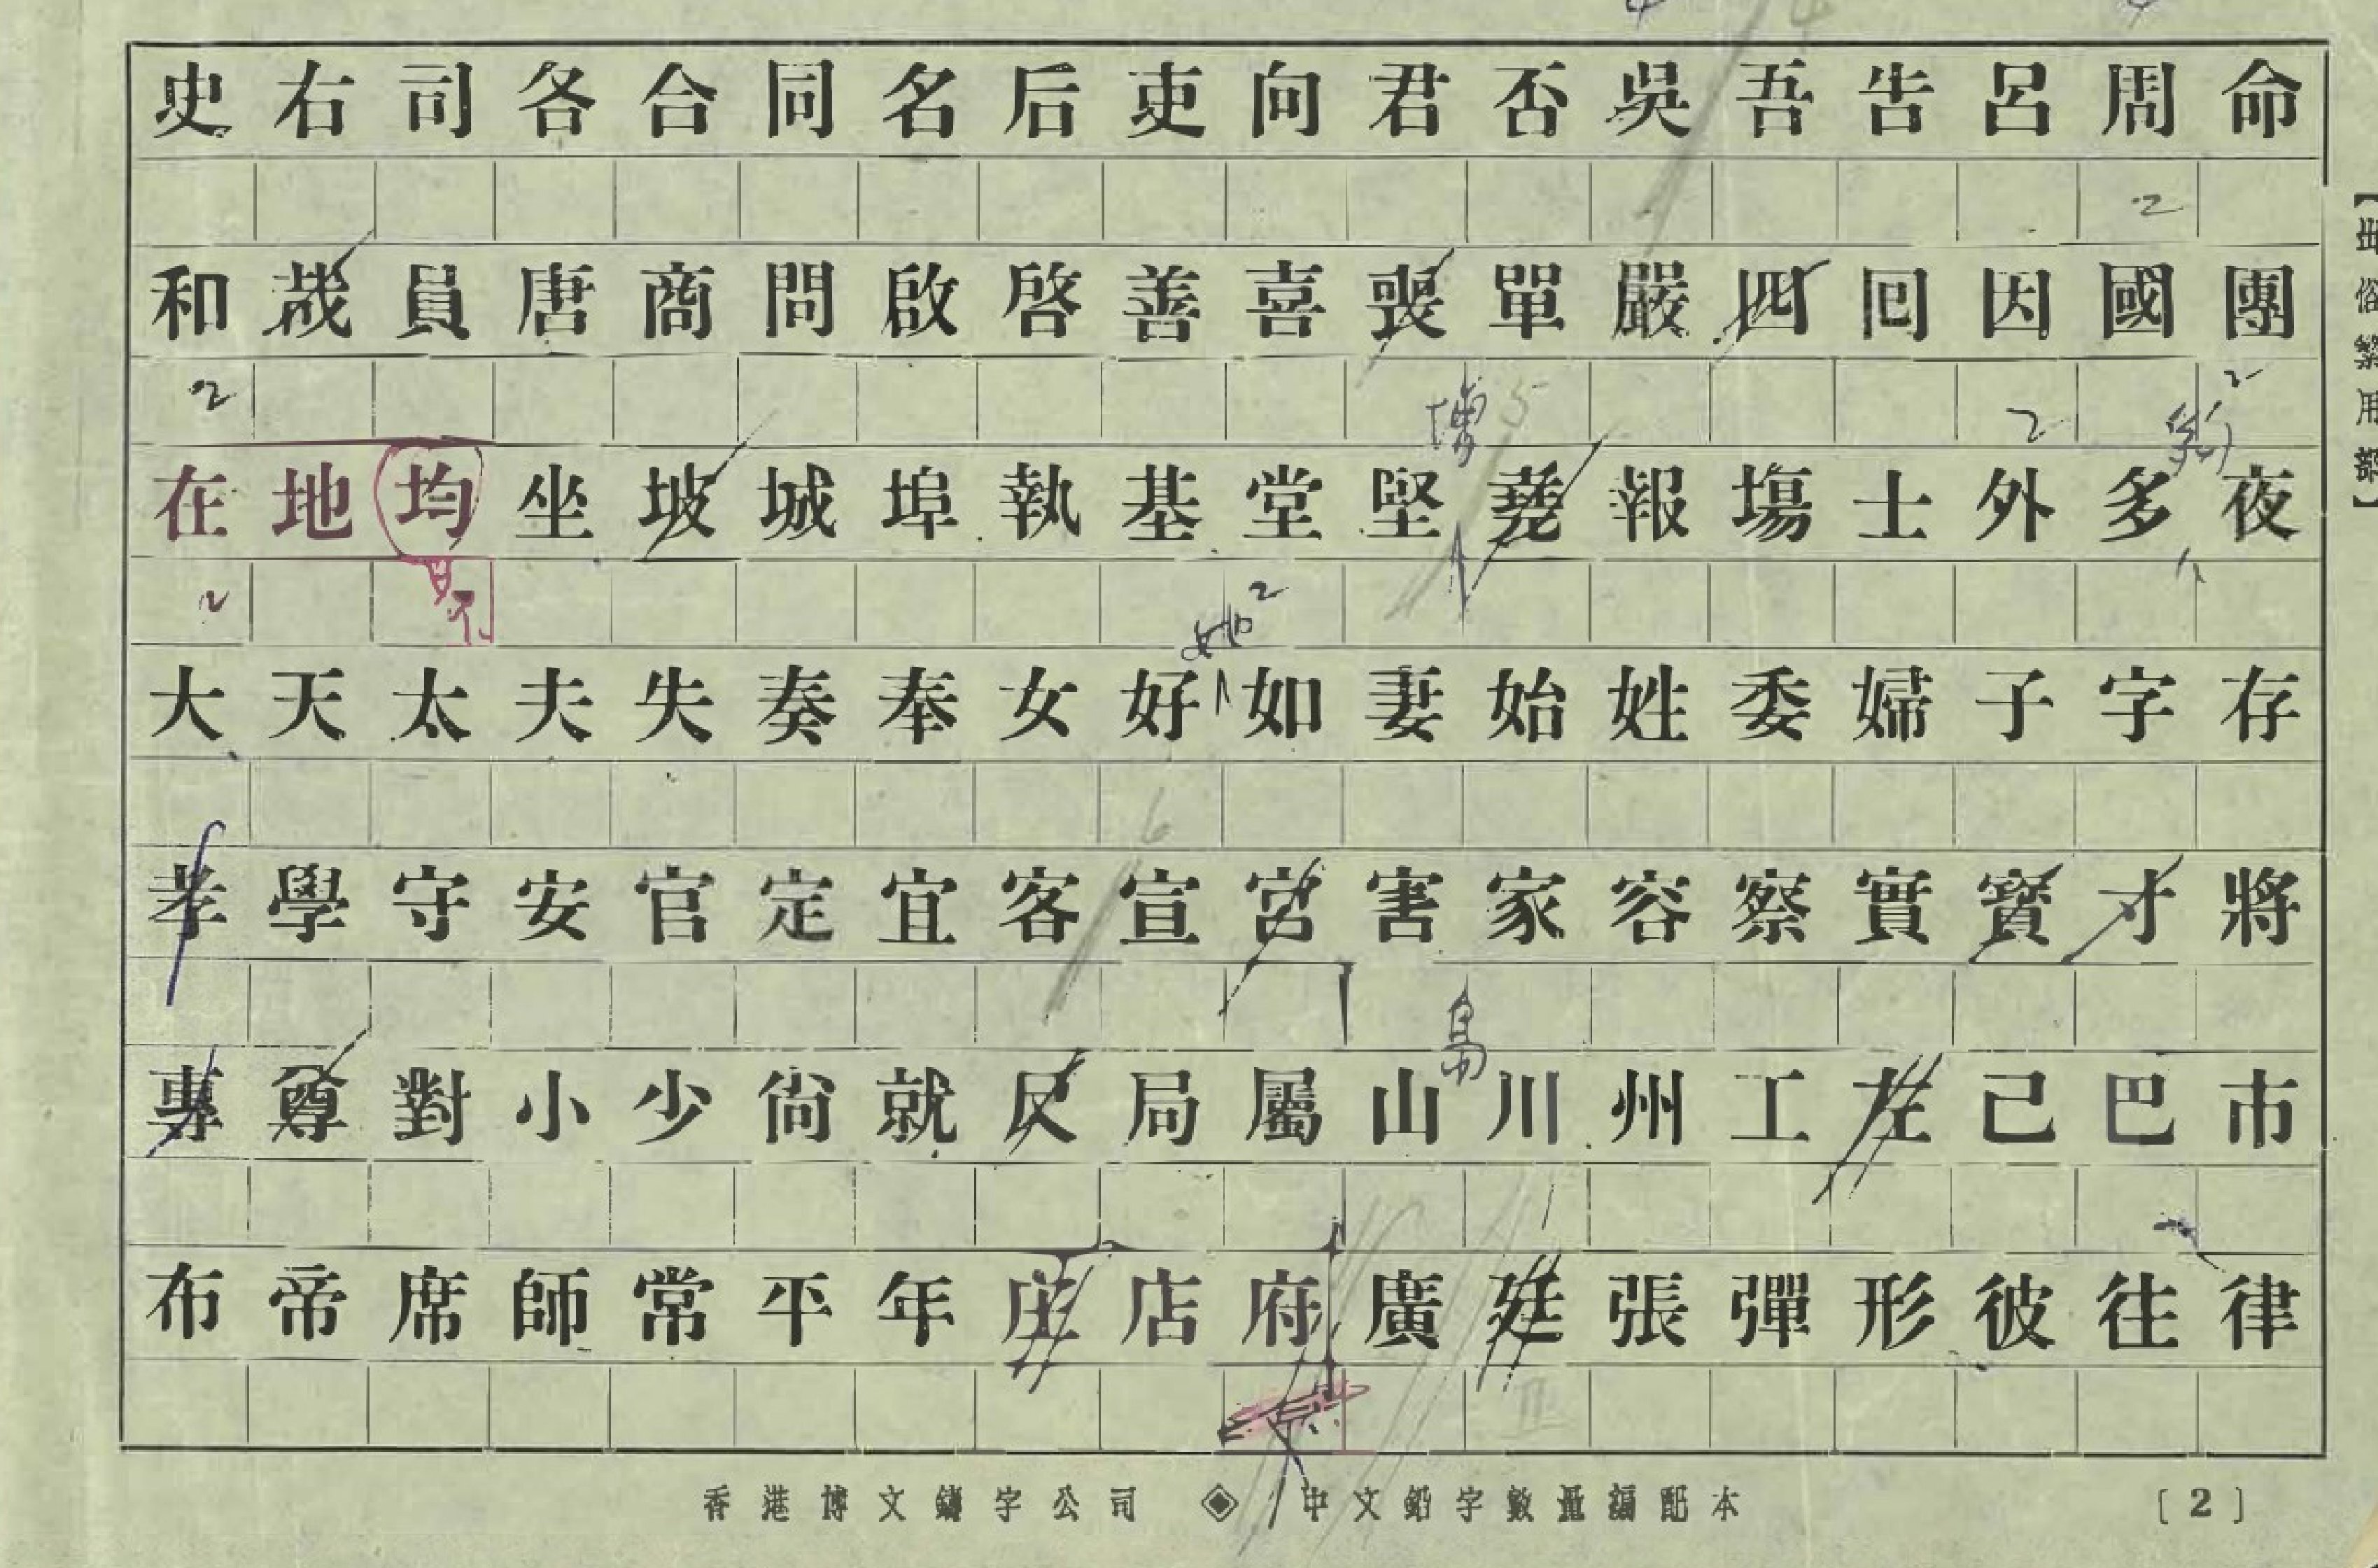 史右司各合同名后吏向君否吳吾告呂周命
2
和哉員唐商問啟啓善喜喪單嚴四回因國團
2 5 2 2
在地均坐坡城埠執基堂堅堯報塲士外多夜
2 2
大天太夫失奏奉女好如妻始姓委婦子字存
6
孝學守安官定宜客宣宮害家容察實寳才將
島
專尊對小少尙就尺局屬山川州工左己巴市
布帝席師常平年庄店府廣廷張彈形彼往律
香港博文鑄字公司 ◈ 中文鉛字數量編配本
[2]